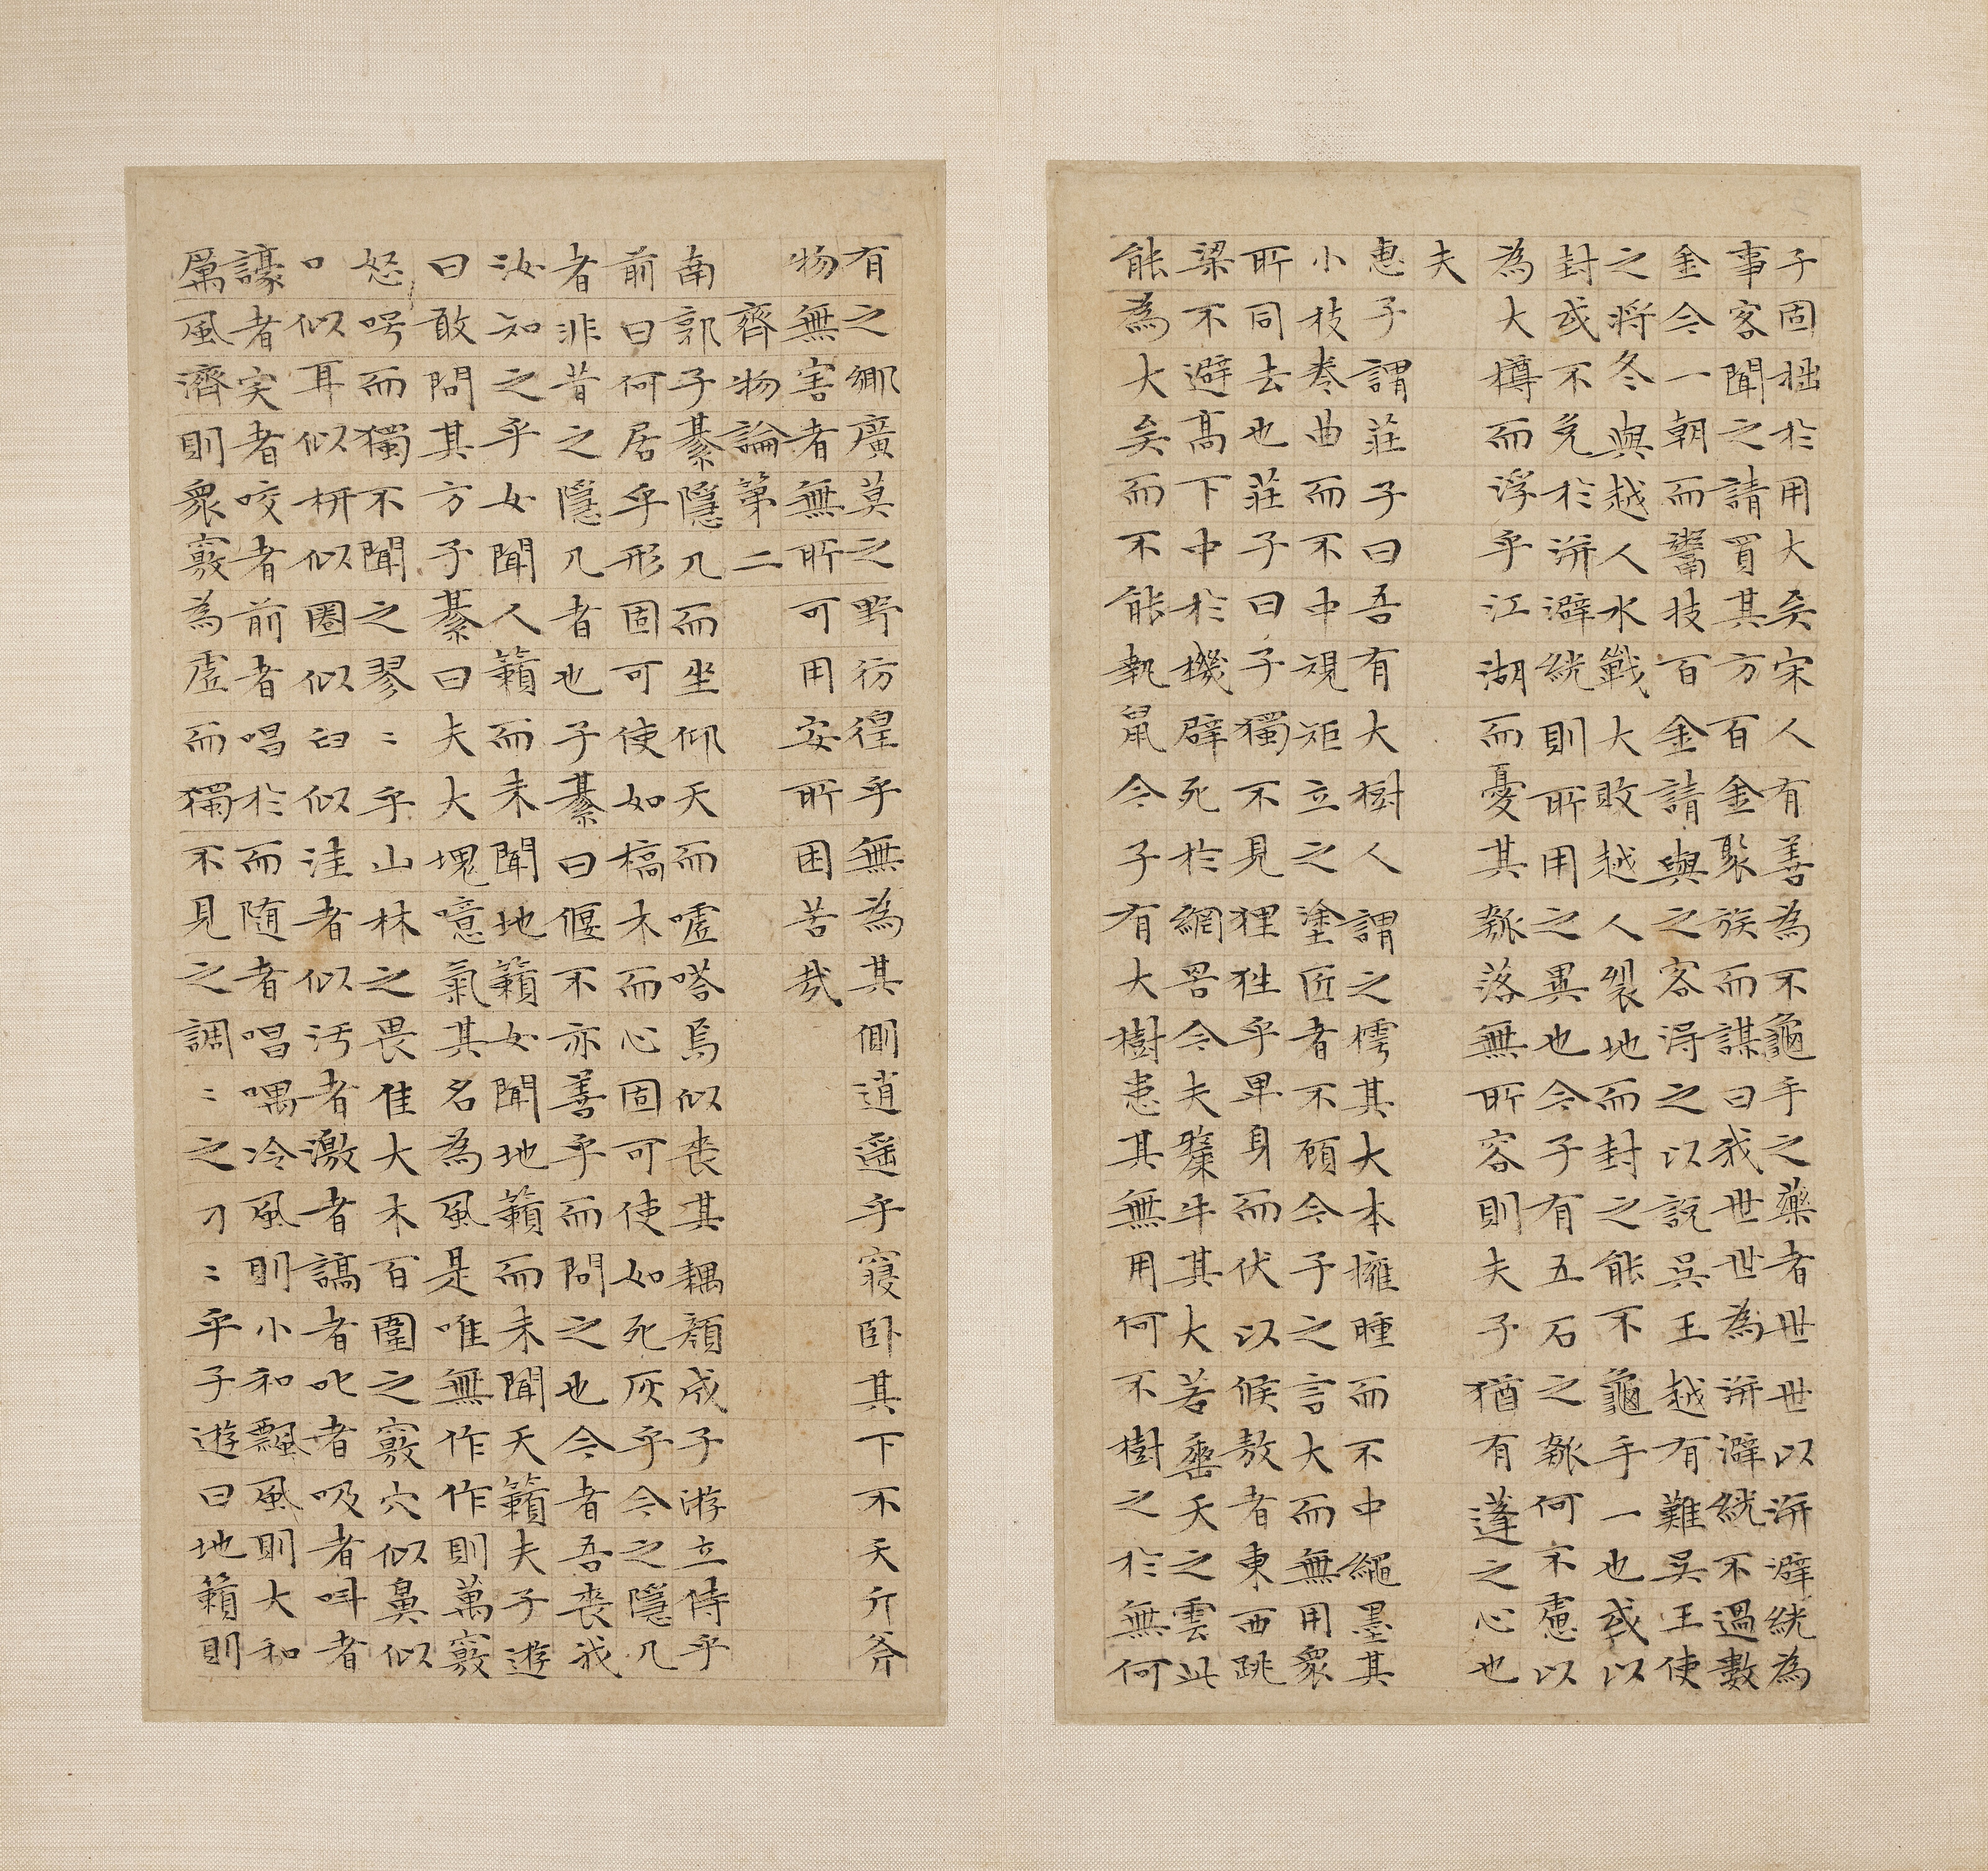 子固拙於用大矣宋人有善為不龜手之藥者世世以洴澼絖為
事客聞之請買其方百金聚族而謀曰我世世為洴澼絖不過數
金今一朝而鬻技百金請與之客得之以說吳王越有難吳王使
之將冬與越人水戰大敗越人裂地而封之能不龜手一也或以
封或不免於洴澼絖則所用之異也今子有五石之瓠何不慮以
為大樽而浮乎江湖而憂其瓠落無所容則夫子猶有蓬之心也
夫
惠子謂莊子曰吾有大樹人謂之樗其大本擁腫而不中繩墨其
小枝卷曲而不中規矩立之塗匠者不顧今子之言大而無用衆
所同去也莊子曰子獨不見狸狌乎卑身而伏以候敖者東西跳
梁不避高下中於機辟死於網罟今夫斄牛其大若垂天之雲此
能為大矣而不能執鼠今子有大樹患其無用何不樹之於無何
有之鄉廣莫之野彷徨乎無為其側逍遥乎寢卧其下不夭斤斧
物無害者無所可用安所困苦哉
齊物論第二
南郭子綦隱几而坐仰天而噓嗒焉似喪其耦顏成子游立侍乎
前曰何居乎形固可使如槁木而心固可使如死灰乎今之隱几
者非昔之隱几者也子綦曰偃不亦善乎而問之也今者吾喪我
汝知之乎女聞人籟而未聞地籟女聞地籟而未聞天籟夫子遊
曰敢問其方子綦曰夫大塊噫氣其名為風是唯無作作則萬竅
怒呺而獨不聞之翏〻乎山林之畏佳大木百圍之竅穴似鼻似
口似耳似枅似圈似臼似洼者似汚者激者謞者叱者吸者叫者
譹者宎者咬者前者唱於而隨者唱喁冷風則小和飄風則大和
厲風濟則衆竅為虛而獨不見之調〻之刁〻乎子遊曰地籟則